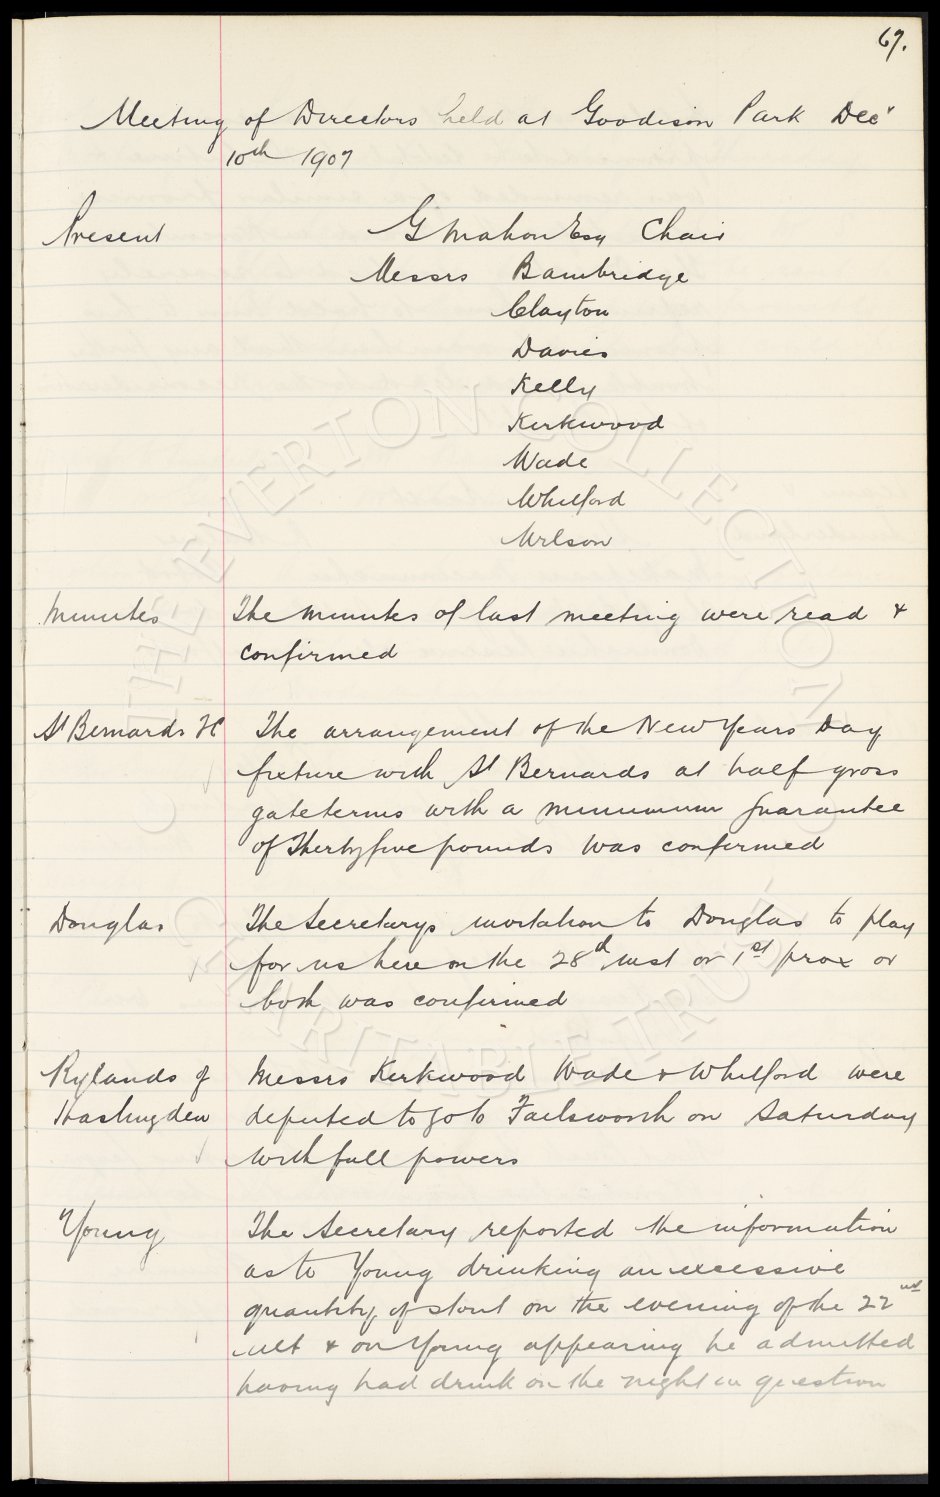 67.
Meeting of Directors held at Goodison Park Decr
10th 1907
Present G Mahon Esq Chair
Messrs Bainbridge
Clayton
Davies
Kelly
Kirkwood
Wade
Whitford
Wilson
Minutes The minutes of last meeting were read &
confirmed
St Bernards FC The arrangement of the New Years Day
fixture with St Bernards at half gross
gate terms with a minimum guarantee
of Thirtyfive pounds was confirmed
Douglas The Secretarys invitation to Douglas to play
for us here on the 28th inst or 1st prox or
both was confirmed
Rylands of Messrs Kirkwood Wade & Whitford were
Haslingden deputed to go to Failsworth on Saturday
with full powers
Young The Secretary reported the information
as to Young drinking an excessive
quantity of stout on the evening of the 22nd
ult & on Young appearing he admitted
having had drink on the night in question
THE EVERTON COLLECTION
CHARITABLE TRUST